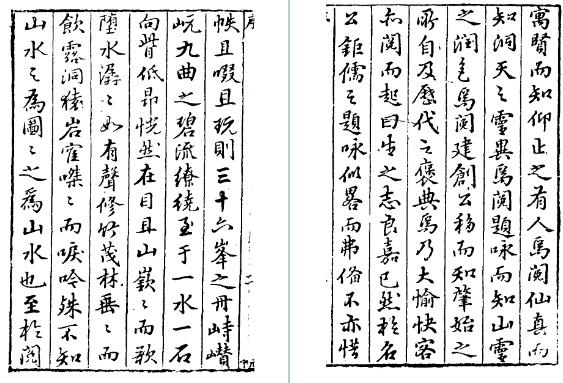 寓賢而知仰止之有人焉閱仙真而
知洞天之靈異焉閱題咏而知山靈
之潤色焉閱建創公移而知肇始之
所自及歷代之褒典焉乃大愉快客
閱而起曰生之志良嘉已然於名
公鉅儒之題咏似畧而弗俻不亦惜
序
二
帙且啜且玩則三十六峯之丹峙巑
岏九曲之碧流繚繞至于一水一石
向背低昻恍然在目且山嶽〻而欹
墮水潺〻如有聲修竹茂林垂〻而
飲露洞猿岩寉嗥〻而唳吟殊不知
山水之為圖〻之為山水也至於閱